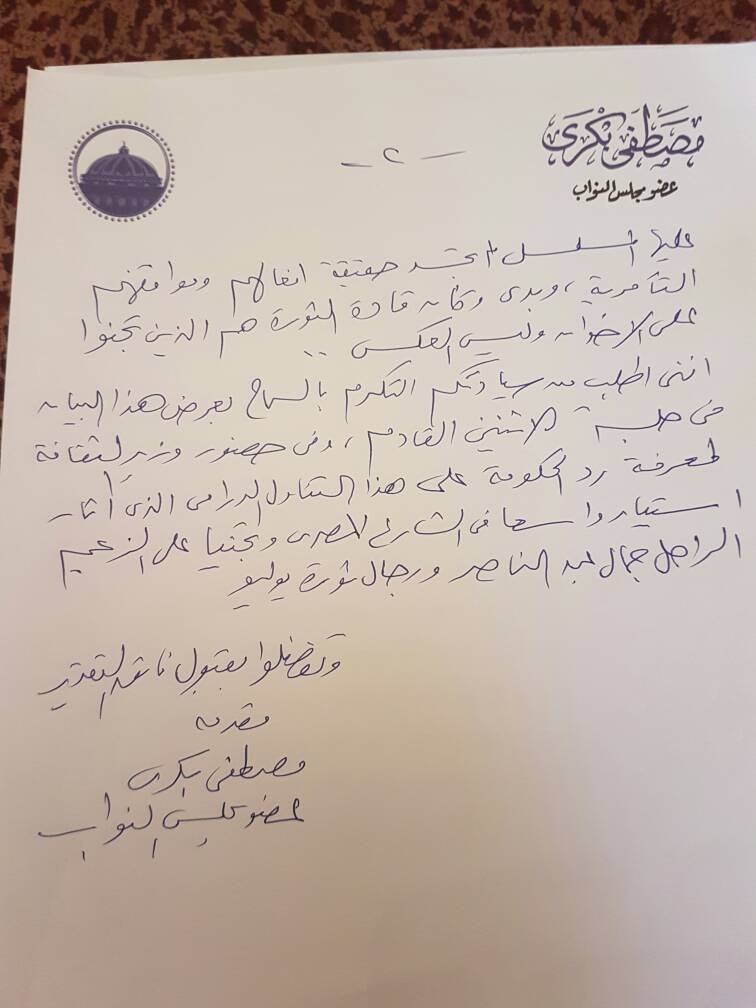 مصطفى بكرى
عضو مجلس النواب
- ٢ -
عليها المسلسل لم تجسد حقيقة افعالهم ومواقفهم
التآمرية، وبدى وكأن قادة الثورة هم الذين تجنوا
على الاخوان وليس العكس ..
اننى اطلب من سيادتكم التكرم بالسماح بعرض هذا البيان
فى جلسة الاثنين القادم، وفى حضور وزير الثقافة
لمعرفة رد الحكومة على هذا التناول الدرامى الذى أثار
استياء واسعا فى الشارع المصرى وتجنيا على الزعيم
الراحل جمال عبد الناصر ورجال ثورة يوليو
وتفضلوا بقبول فائق التقدير
مقدمه
مصطفى بكرى
عضو مجلس النواب